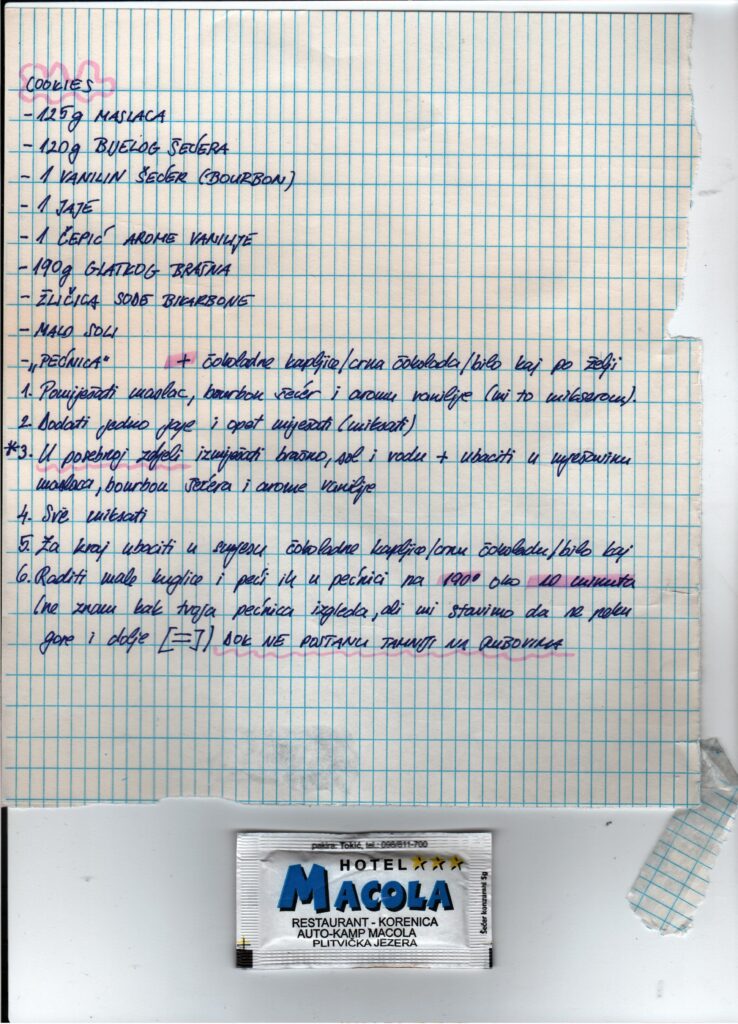 COOKIES
- 125g MASLACA
- 120g BIJELOG ŠEĆERA
- 1 VANILIN ŠEĆER (BOURBON)
- 1 JAJE
- 1 ČEPIĆ AROME VANILIJE
- 190g GLATKOG BRAŠNA
- ŽLIČICA SODE BIKARBONE
- MALO SOLI
- „PEĆNICA“ + čokoladne kapljice/crna čokolada/bilo kaj po želji
1. Pomiješati maslac, bourbon šećer i aromu vanilije (mi to mikserom).
2. Dodati jedno jaje i opet miješati (miksati)
*3. U posebnoj zdjeli izmiješati brašno, sol i sodu + ubaciti u mješavinu
maslaca, bourbon šećera i arome vanilije
4. Sve miksati
5. Za kraj ubaciti u smjesu čokoladne kapljice/crnu čokoladu/bilo kaj
6. Raditi male kuglice i peći ih u pećnici na 190° oko 10 minuta
(ne znam kak tvoja pećnica izgleda, ali mi stavimo da se peku
gore i dolje [=]) DOK NE POSTANU TAMNIJI NA RUBOVIMA
pakira: Tokić, tel.: 098/611-700
HOTEL
MACOLA
RESTAURANT - KORENICA
AUTO-KAMP MACOLA
PLITVIČKA JEZERA
Šećer konzumni 5g